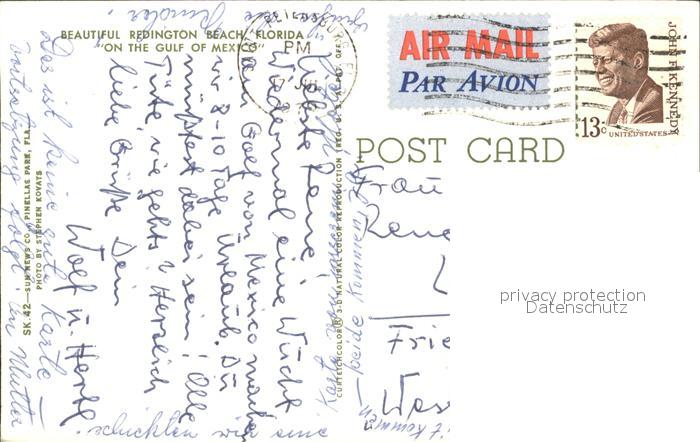 BEAUTIFUL REDINGTON BEACH, FLORIDA
"ON THE GULF OF MEXICO"
PM
AIR MAIL
PAR AVION
JOHN F. KENNEDY
13c
UNITED STATES
POST CARD
Frau
Rena
Frie
Wass
privacy protection
Datenschutz
Liebste Rena,
Wiedermal eine Wucht
am Golf von Mexico machen
wir 8-10 Tage Urlaub. Du
müsstest dabei sein! Alles
Gute, wie gehts? Herzlich
liebe Grüße Dein
Wolf u. Herta
Das ist keine gute Karte
folgt in Mutter
schickten wir eine
Karte von unserem
beide kommen
SK. 42—SUN NEWS CO., PINELLAS PARK, FLA.
PHOTO BY STEPHEN KOVATS
CURTEICHCOLOR® 3-D NATURAL COLOR REPRODUCTION (REG. U.S.A. PAT. OFF.)